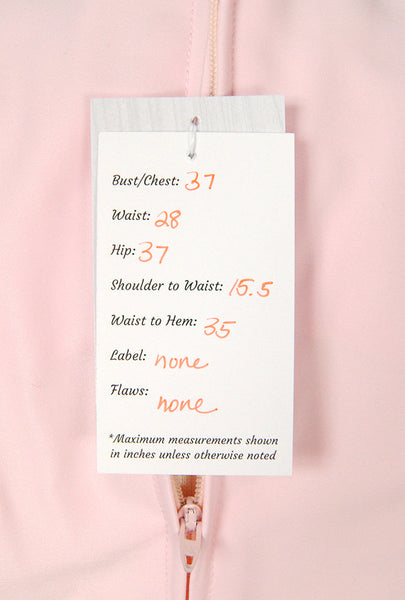 Bust/Chest: 37
Waist: 28
Hip: 37
Shoulder to Waist: 15.5
Waist to Hem: 35
Label: none
Flaws: none
*Maximum measurements shown
in inches unless otherwise noted